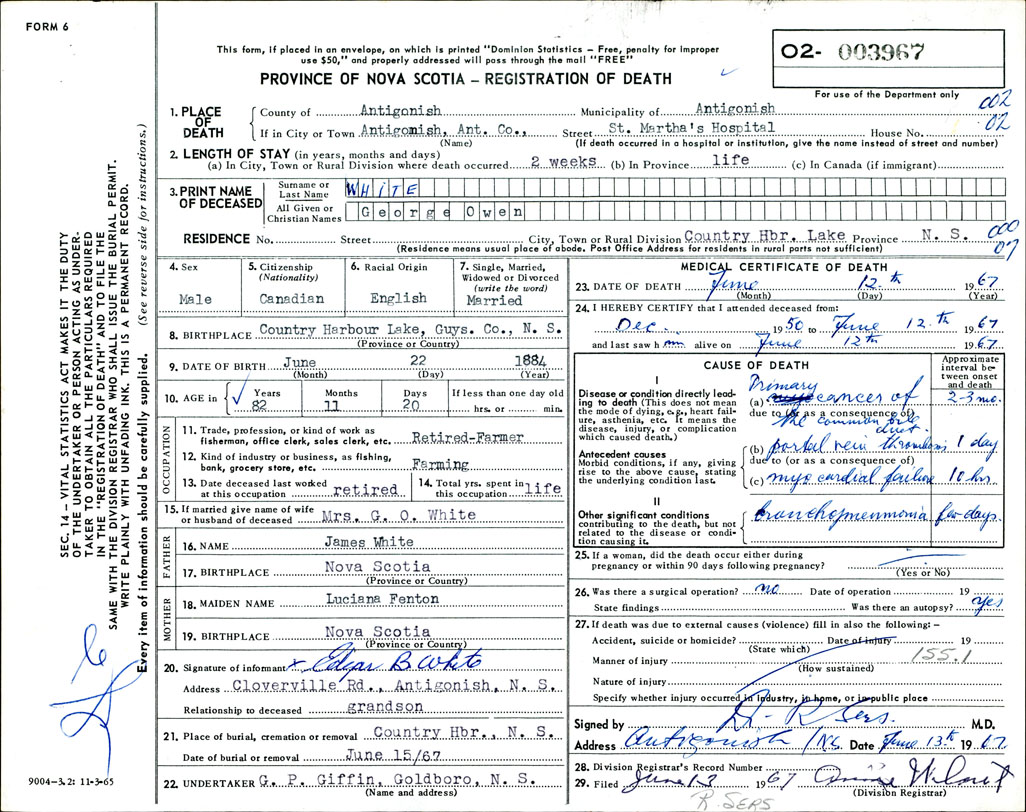 FORM 6
This form, if placed in an envelope, on which is printed "Dominion Statistics – Free, penalty for improper
use $50," and properly addressed will pass through the mail "FREE"
PROVINCE OF NOVA SCOTIA – REGISTRATION OF DEATH
02- 003967
For use of the Department only
002
02
SEC. 14 – VITAL STATISTICS ACT MAKES IT THE DUTY
OF THE UNDERTAKER OR PERSON ACTING AS UNDER-
TAKER TO OBTAIN ALL THE PARTICULARS REQUIRED
IN THE "REGISTRATION OF DEATH" AND TO FILE THE
SAME WITH THE DIVISION REGISTRAR WHO SHALL ISSUE THE BURIAL PERMIT.
WRITE PLAINLY WITH UNFADING INK. THIS IS A PERMANENT RECORD.
Every item of information should be carefully supplied. (See reverse side for instructions.)
1. PLACE OF DEATH
County of Antigonish Municipality of Antigonish
If in City or Town Antigomish, Ant. Co., Street St. Martha's Hospital House No.
(Name) (If death occurred in a hospital or institution, give the name instead of street and number)
2. LENGTH OF STAY (in years, months and days)
(a) In City, Town or Rural Division where death occurred 2 weeks (b) In Province life (c) In Canada (if immigrant)
3. PRINT NAME OF DECEASED
Surname or Last Name WHITE
All Given or Christian Names George Owen
RESIDENCE No. Street City, Town or Rural Division Country Hbr. Lake Province N. S.
(Residence means usual place of abode. Post Office Address for residents in rural parts not sufficient)
000
07
4. Sex
Male
5. Citizenship
(Nationality)
Canadian
6. Racial Origin
English
7. Single, Married,
Widowed or Divorced
(write the word)
Married
8. BIRTHPLACE Country Harbour Lake, Guys. Co., N. S.
(Province or Country)
9. DATE OF BIRTH June 22 1884
(Month) (Day) (Year)
10. AGE in
Years Months Days If less than one day old
82 11 20 hrs. or min.
OCCUPATION
11. Trade, profession, or kind of work as
fisherman, office clerk, sales clerk, etc. Retired-Farmer
12. Kind of industry or business, as fishing,
bank, grocery store, etc. Farming
13. Date deceased last worked
at this occupation retired
14. Total yrs. spent in
this occupation life
15. If married give name of wife
or husband of deceased Mrs. G. O. White
FATHER
16. NAME James White
17. BIRTHPLACE Nova Scotia
(Province or Country)
MOTHER
18. MAIDEN NAME Luciana Fenton
19. BIRTHPLACE Nova Scotia
(Province or Country)
20. Signature of informant x Edgar B White
Address Cloverville Rd., Antigonish, N. S.
Relationship to deceased grandson
21. Place of burial, cremation or removal Country Hbr., N. S.
Date of burial or removal June 15/67
22. UNDERTAKER G. P. Giffin, Goldboro, N. S.
(Name and address)
9004-3.2: 11-3-65
MEDICAL CERTIFICATE OF DEATH
23. DATE OF DEATH June 12th 1967
(Month) (Day) (Year)
24. I HEREBY CERTIFY that I attended deceased from:
Dec. 1950 to June 12th 1967
and last saw him alive on June 12th 1967.
CAUSE OF DEATH
Approximate
interval be-
tween onset
and death
I
Disease or condition directly lead-
ing to death (This does not mean
the mode of dying, e.g., heart fail-
ure, asthenia, etc. It means the
disease, injury, or complication
which caused death.)
Primary
(a) cancer of 2-3 mo.
due to (or as a consequence of)
the common bile
duct.
Antecedent causes
Morbid conditions, if any, giving
rise to the above cause, stating
the underlying condition last.
(b) portal vein thrombosis 1 day
due to (or as a consequence of)
(c) myocardial failure 10 hrs.
II
Other significant conditions
contributing to the death, but not
related to the disease or condi-
tion causing it.
bronchopneumonia few days.
25. If a woman, did the death occur either during
pregnancy or within 90 days following pregnancy?
(Yes or No)
26. Was there a surgical operation? no Date of operation 19
State findings Was there an autopsy? yes
27. If death was due to external causes (violence) fill in also the following: –
Accident, suicide or homicide? Date of injury 19
(State which)
155.1
Manner of injury
(How sustained)
Nature of injury
Specify whether injury occurred in industry, in home, or in public place
Signed by R Sers. M.D.
Address Antigonish / NS. Date June 13th 1967
28. Division Registrar's Record Number
29. Filed June 13 1967
(Division Registrar)
R. SERS